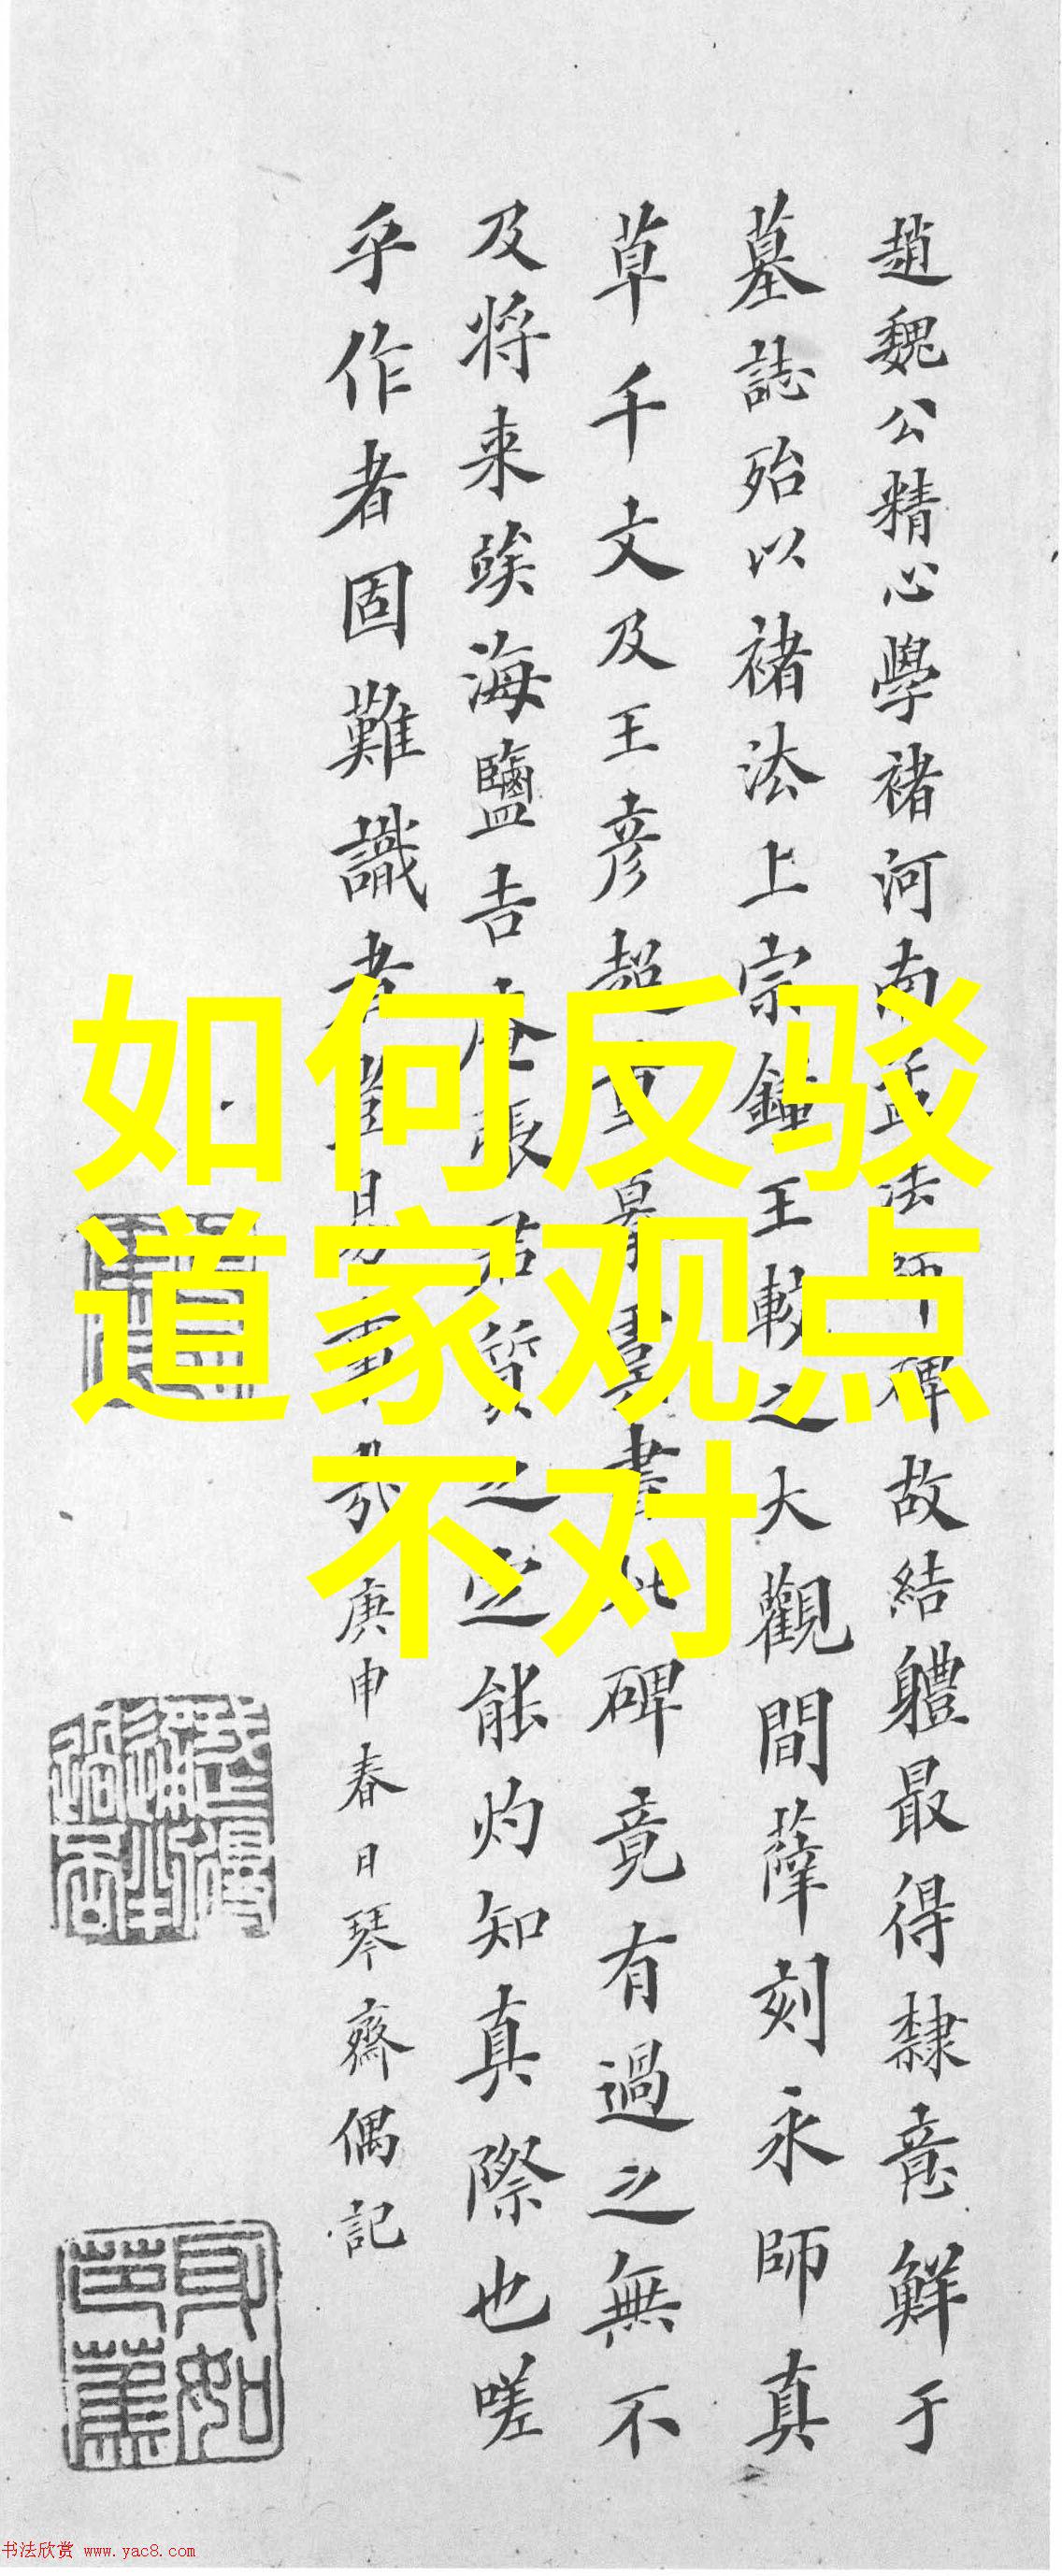 趙魏公精心學褚河南孟法師碑故結軆最得隸意鮮于
墓誌殆以褚法上宗鍾王較之大觀間薛刻永師真
草千文及王彦超重摹虞書此碑竟有過之無不
及将来貽海鹽吉庵張君質之定能灼知真際也嗟
乎作者固難識者豈易耶
庚申春日琴齋偶記
如何反驳
道家观点
不对
书法欣赏 www.yac8.com